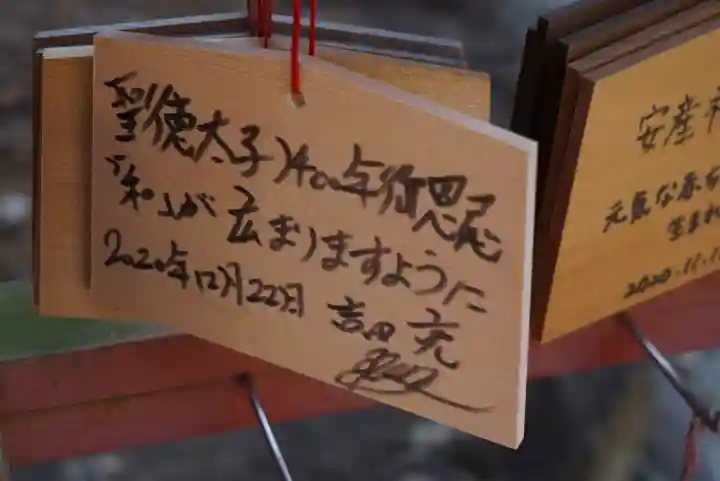 聖徳太子1400年御恩忌
「和」が広まりますように
2020年12月22日 吉田 充
安産
元気な赤
生まれ
2020.11.1